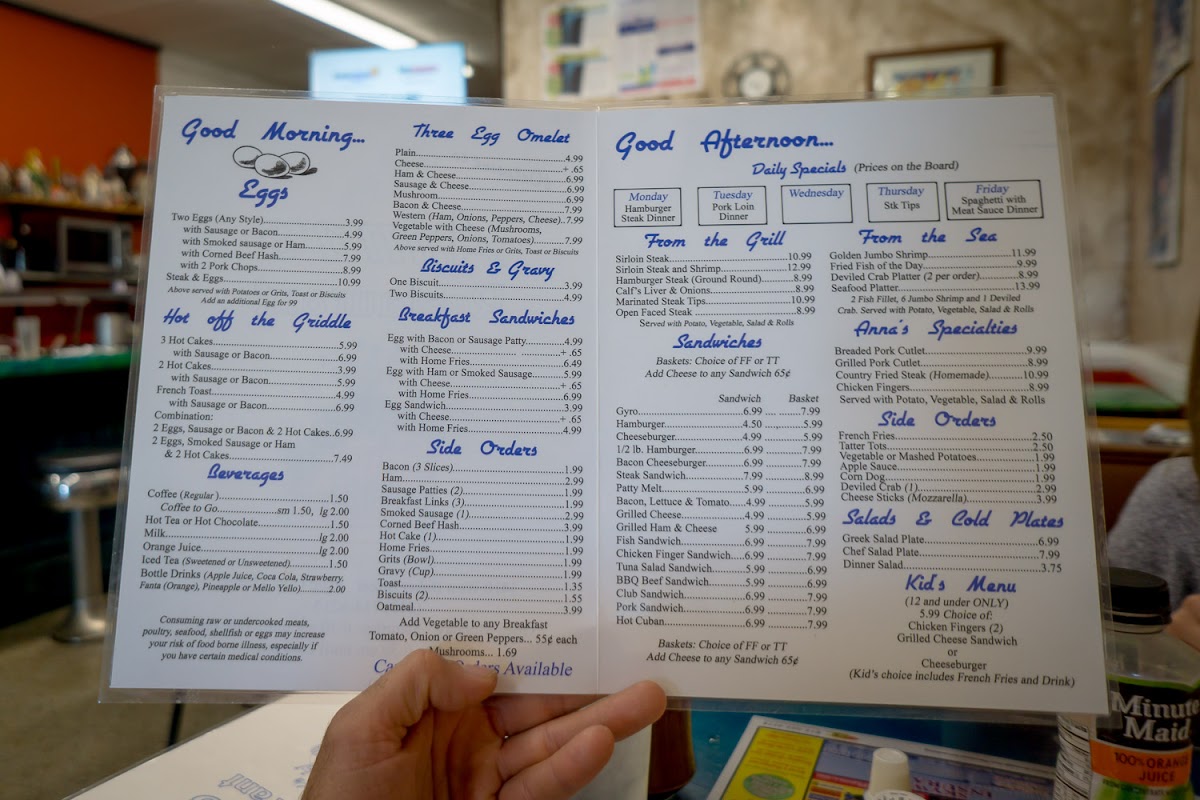 Good Morning...
Eggs
Two Eggs (Any Style)...3.99
with Sausage or Bacon...4.99
with Smoked sausage or Ham...5.99
with Corned Beef Hash...7.99
with 2 Pork Chops...8.99
Steak & Eggs...10.99
Above served with Potatoes or Grits, Toast or Biscuits
Add an additional Egg for 99
Hot off the Griddle
3 Hot Cakes...5.99
with Sausage or Bacon...6.99
2 Hot Cakes...3.99
with Sausage or Bacon...5.99
French Toast...4.99
with Sausage or Bacon...6.99
Combination:
2 Eggs, Sausage or Bacon & 2 Hot Cakes..6.99
2 Eggs, Smoked Sausage or Ham
& 2 Hot Cakes...7.49
Beverages
Coffee (Regular)...1.50
Coffee to Go...sm 1.50, lg 2.00
Hot Tea or Hot Chocolate...1.50
Milk...lg 2.00
Orange Juice...lg 2.00
Iced Tea (Sweetened or Unsweetened)...1.50
Bottle Drinks (Apple Juice, Coca Cola, Strawberry.
Fanta (Orange), Pineapple or Mello Yello)...2.00
Consuming raw or undercooked meats,
poultry, seafood, shellfish or eggs may increase
your risk of food borne illness, especially if
you have certain medical conditions.
Three Egg Omelet
Plain...4.99
Cheese...+ .65
Ham & Cheese...6.99
Sausage & Cheese...6.99
Mushroom...6.99
Bacon & Cheese...7.99
Western (Ham, Onions, Peppers, Cheese)..7.99
Vegetable with Cheese (Mushrooms,
Green Peppers, Onions, Tomatoes)...7.99
Above served with Home Fries or Grits, Toast or Biscuits
Biscuits & Gravy
One Biscuit...3.99
Two Biscuits...4.99
Breakfast Sandwiches
Egg with Bacon or Sausage Patty...4.99
with Cheese...+ .65
with Home Fries...6.49
Egg with Ham or Smoked Sausage...5.99
with Cheese...+ .65
with Home Fries...6.99
Egg Sandwich...3.99
with Cheese...+ .65
with Home Fries...4.99
Side Orders
Bacon (3 Slices)...1.99
Ham...2.99
Sausage Patties (2)...1.99
Breakfast Links (3)...1.99
Smoked Sausage (1)...2.99
Corned Beef Hash...3.99
Hot Cake (1)...1.99
Home Fries...1.99
Grits (Bowl)...1.99
Gravy (Cup)...1.99
Toast...1.35
Biscuits (2)...1.55
Oatmeal...3.99
Add Vegetable to any Breakfast
Tomato, Onion or Green Peppers... 55¢ each
Mushrooms... 1.69
Available
Good Afternoon...
Daily Specials (Prices on the Board)
Monday
Hamburger
Steak Dinner
Tuesday
Pork Loin
Dinner
Wednesday
Thursday
Stk Tips
Friday
Spaghetti with
Meat Sauce Dinner
From the Grill
Sirloin Steak...10.99
Sirloin Steak and Shrimp...12.99
Hamburger Steak (Ground Round)...8.99
Calf's Liver & Onions...8.99
Marinated Steak Tips...10.99
Open Faced Steak...8.99
Served with Potato, Vegetable, Salad & Rolls
Sandwiches
Baskets: Choice of FF or TT
Add Cheese to any Sandwich 65¢
Sandwich Basket
Gyro...6.99...7.99
Hamburger...4.50...5.99
Cheeseburger...4.99...5.99
1/2 lb. Hamburger...6.99...7.99
Bacon Cheeseburger...6.99...7.99
Steak Sandwich...7.99...8.99
Patty Melt...5.99...6.99
Bacon, Lettuce & Tomato...4.99...5.99
Grilled Cheese...4.99...5.99
Grilled Ham & Cheese 5.99...6.99
Fish Sandwich...6.99...7.99
Chicken Finger Sandwich...6.99...7.99
Tuna Salad Sandwich...5.99...6.99
BBQ Beef Sandwich...5.99...6.99
Club Sandwich...6.99...7.99
Pork Sandwich...6.99...7.99
Hot Cuban...6.99...7.99
Baskets: Choice of FF or TT
Add Cheese to any Sandwich 65¢
From the Sea
Golden Jumbo Shrimp...11.99
Fried Fish of the Day...9.99
Deviled Crab Platter (2 per order)...8.99
Seafood Platter...13.99
2 Fish Fillet, 6 Jumbo Shrimp and 1 Deviled
Crab. Served with Potato, Vegetable, Salad & Rolls
Anna's Specialties
Breaded Pork Cutlet...9.99
Grilled Pork Cutlet...8.99
Country Fried Steak (Homemade)...10.99
Chicken Fingers...8.99
Served with Potato, Vegetable, Salad & Rolls
Side Orders
French Fries...2.50
Tatter Tots...2.50
Vegetable or Mashed Potatoes...1.99
Apple Sauce...1.99
Corn Dog...1.99
Deviled Crab (1)...2.99
Cheese Sticks (Mozzarella)...3.99
Salads & Cold Plates
Greek Salad Plate...6.99
Chef Salad Plate...7.99
Dinner Salad...3.75
Kid's Menu
(12 and under ONLY)
5.99 Choice of:
Chicken Fingers (2)
Grilled Cheese Sandwich
or
Cheeseburger
(Kid's choice includes French Fries and Drink)
Minute
Maid
100% ORANGE
JUICE